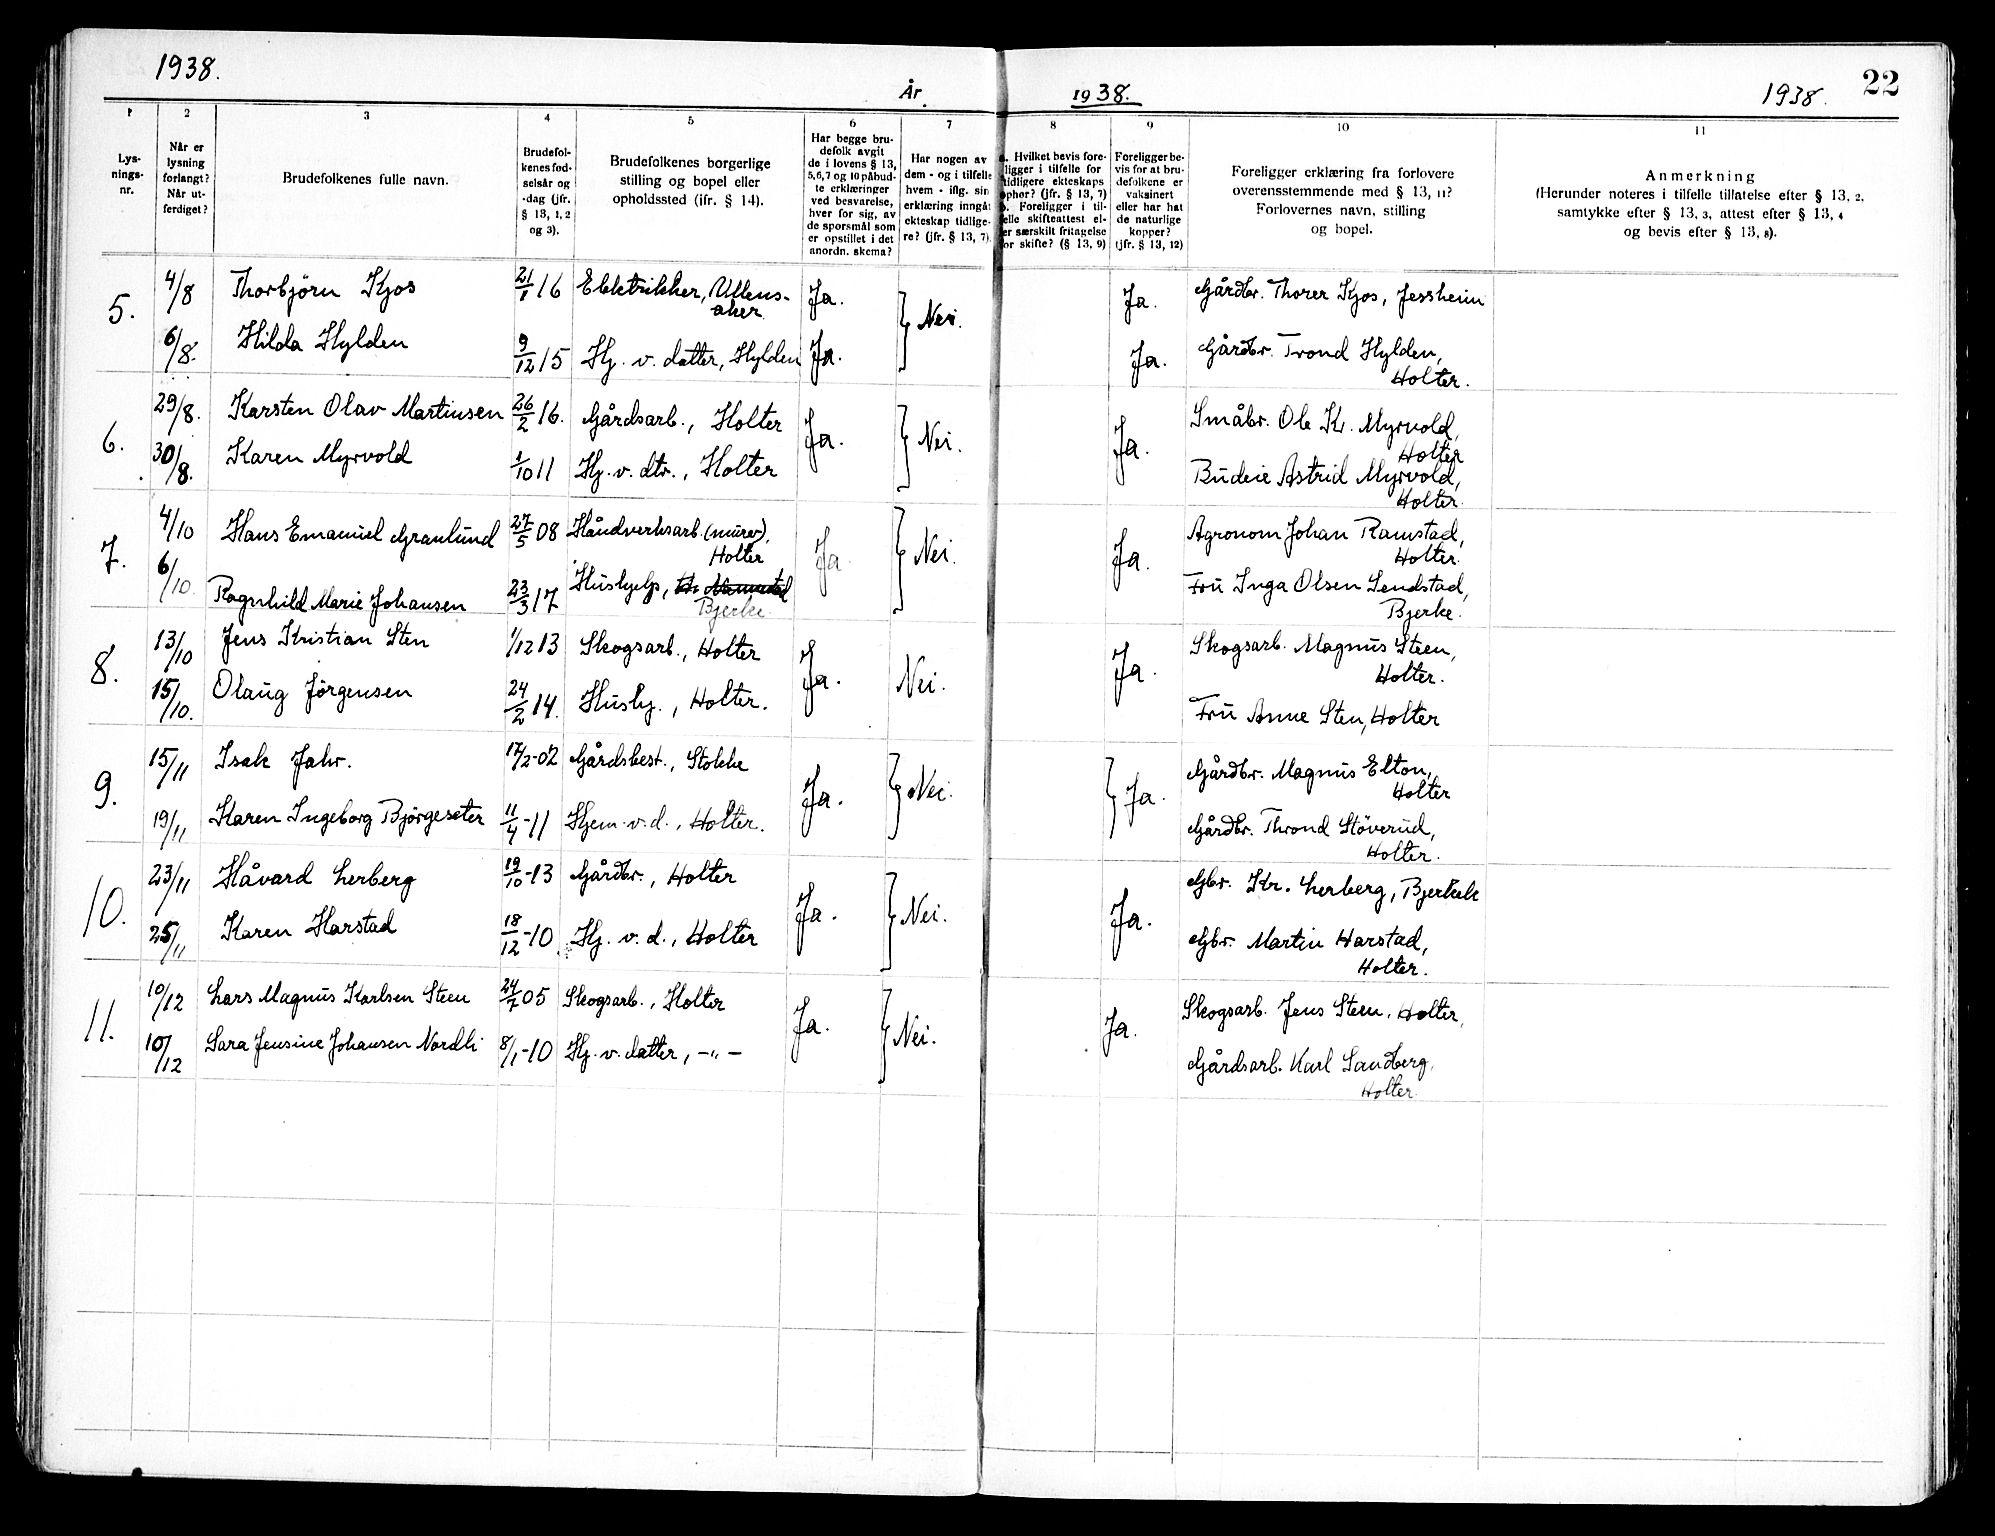 1938.
År
1938.
1938.
22
1
2
3
4
5
6
7
8
9
10
11
Lys-
nings-
nr.
Når er
lysning
forlangt?
Når ut-
ferdiget?
Brudefolkenes fulle navn.
Brudefol-
kenes fød-
selsår og
-dag (jfr.
§ 13, 1, 2
og 3).
Brudefolkenes borgerlige
stilling og bopel eller
opholdssted (ifr. § 14).
Har begge bru-
defolk avgit
de i lovens § 13,
5, 6, 7 og 10 påbud-
te erklæringer
ved besvarelse,
hver for sig, av
de spørsmål som
er opstillet i det
anordn. skema?
Har nogen av
dem - og i tilfelle
hvem - iflg. sin
erklæring inngåt
ekteskap tidlige-
re? (jfr. § 13, 7).
a. Hvilket bevis fore-
ligger i tilfelle for
tidligere ekteskaps
ophør? (jfr. § 13, 7)
b. Foreligger i til-
felle skifteattest el-
ler særskilt fritagelse
for skifte? (§ 13, 9)
Foreligger be-
vis for at bru-
defolkene er
vaksinert
eller har hat
de naturlige
kopper?
(jfr. § 13, 12)
Foreligger erklæring fra forlovere
overensstemmende med § 13, 11?
Forlovernes navn, stilling
og bopel.
Anmerkning
(Herunder noteres i tilfelle tillatelse efter § 13, 2,
samtykke efter § 13, 3, attest efter § 13, 4
og bevis efter § 13, 8).
5.
4/8 Thorbjörn Kjos 21/1 16 Elektrikker, Ullens-
aker
Ja. Nei. Ja. Gårdbr. Thorer Kjos, Jessheim
6/8. Hilda Hylden 9/12 15 Hj. v. datter, Hylden Ja. Ja. Gårdbr. Trond Hylden,
Holter.
6.
29/8. Karsten Olav Martinsen 26/2 16. Gårdsarb., Holter Ja. Nei. Ja. Småbr. Ole Kr. Myrvold,
Holter
30/8. Karen Myrvold 1/10 11 Hj. v. dtr., Holter Budeie Astrid Myrvold,
Holter.
7.
4/10 Hans Emanuel Granlund 27/5 08 Håndverksarb. (murer),
Holter
Ja. Nei. Ja. Agronom Johan Ramstad,
Holter.
6/10. Ragnhild Marie Johansen 23/3 17 Hushjelp,
Bjerke.
Fru Inga Olsen Sendstad,
Bjerke.
8.
13/10 Jens Kristian Sten 1/12 13 Skogsarb., Holter Ja. Nei. Ja. Skogsarb. Magnus Steen,
Holter.
15/10. Olaug Jörgensen 24/2 14. Hushj., Holter. Fru Anne Sten, Holter
9.
15/11 Isak Jahr. 17/2-02 Gårdsbest., Stokke Ja. Nei. Ja. Gårdbr. Magnus Elton,
Holter
19/11 Karen Ingeborg Björgeseter 11/4-11 Hjem. v. d., Holter. Gårdbr. Thrond Stöverud,
Holter.
10.
23/11 Håvard Lerberg 19/10-13 Gårdbr., Holter Ja. Nei. Ja. Gbr. Kr. Lerberg, Bjerke
25/11 Karen Harstad 18/12-10 Hj. v. d., Holter Gbr. Martin Harstad,
Holter.
11.
10/12 Lars Magnus Karlsen Steen 24/7 05 Skogsarb., Holter Ja. Nei. Ja. Skogsarb. Jens Steen, Holter,
10/12 Sara Jensine Johansen Nordli 8/1-10 Hj. v. datter, -"- Gårdsarb. Karl Sandberg,
Holter.